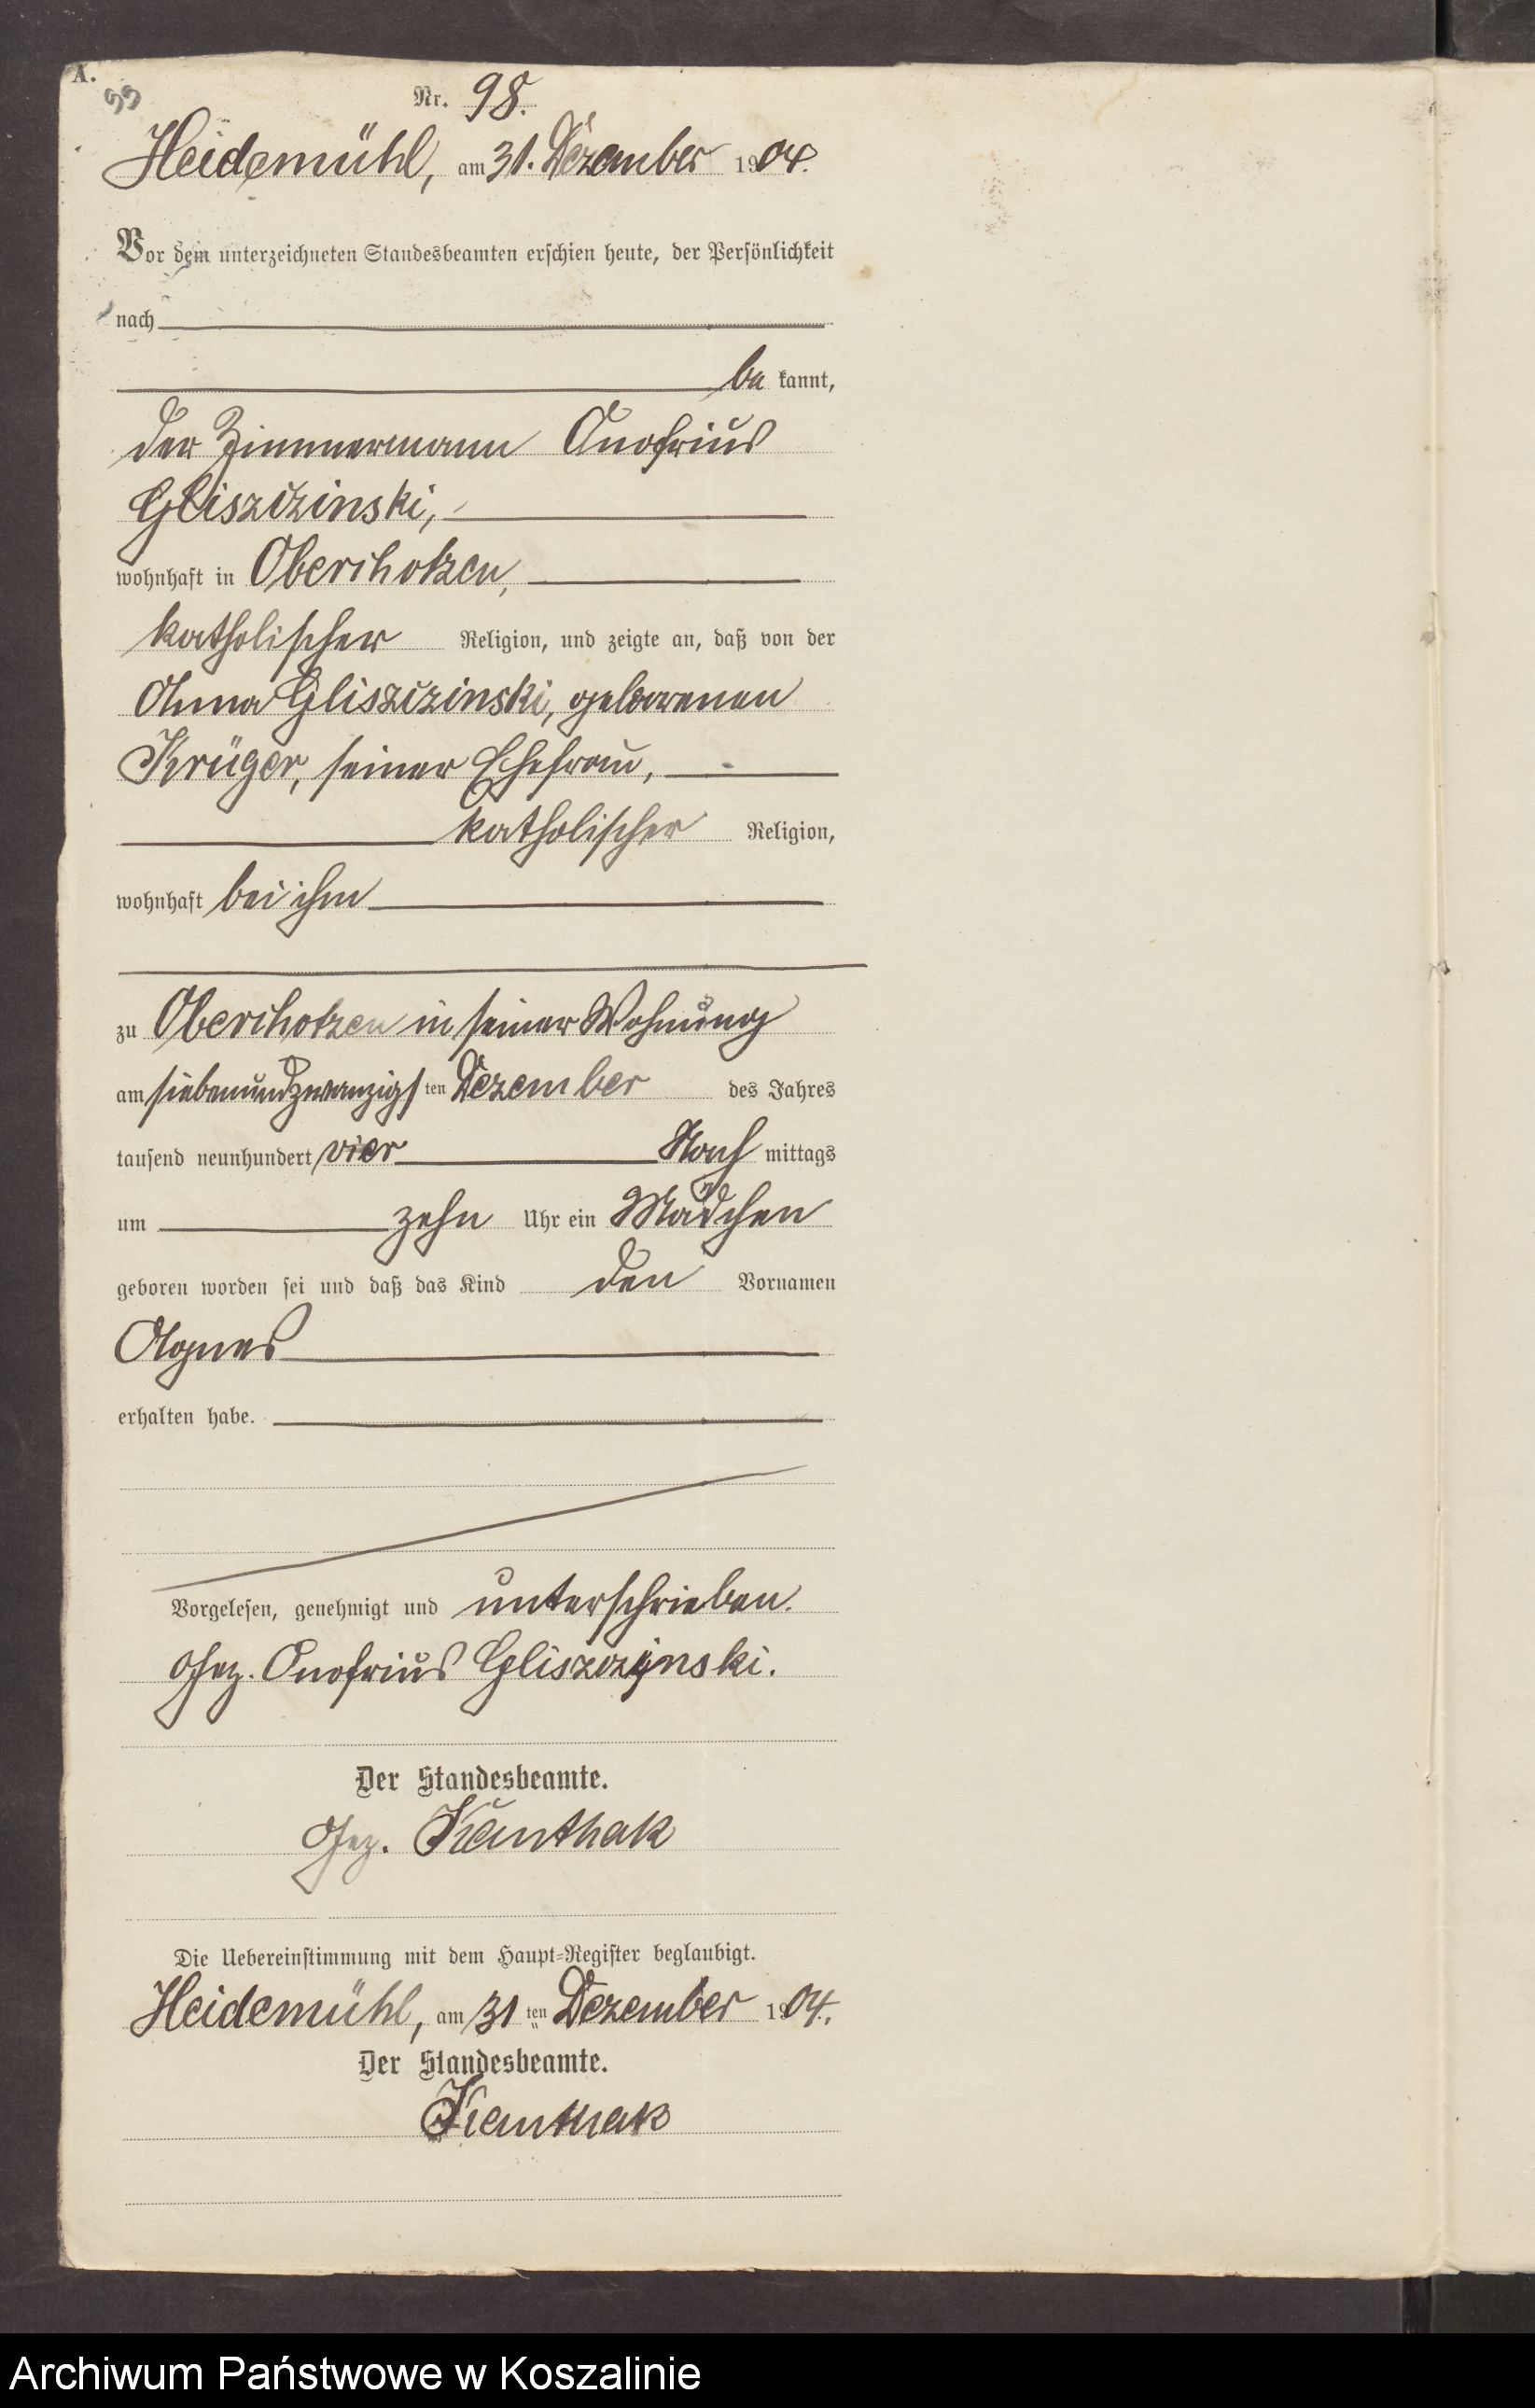 A.
99
Nr. 98.
Heidemühl, am 31. Dezember 1904.
Vor dem unterzeichneten Standesbeamten erschien heute, der Persönlichkeit
nach
be kannt,
der Zimmermann Onofrius
Gliszczinski,
wohnhaft in Oberchotzen,
katholischer Religion, und zeigte an, daß von der
Anna Gliszczinski, geborenen
Krüger, seiner Ehefrau,
katholischer Religion,
wohnhaft bei ihm
zu Oberchotzen in seiner Wohnung
am siebenundzwanzigs ten Dezember des Jahres
tausend neunhundert vier Nach mittags
um zehn Uhr ein Mädchen
geboren worden sei und daß das Kind den Vornamen
Agnes
erhalten habe.
Vorgelesen, genehmigt und unterschrieben.
Gez. Onofrius Gliszczynski.
Der Standesbeamte.
Gez.
Die Uebereinstimmung mit dem Haupt-Register beglaubigt.
Heidemühl, am 31 ten Dezember 1904.
Der Standesbeamte.
Archiwum Państwowe w Koszalinie